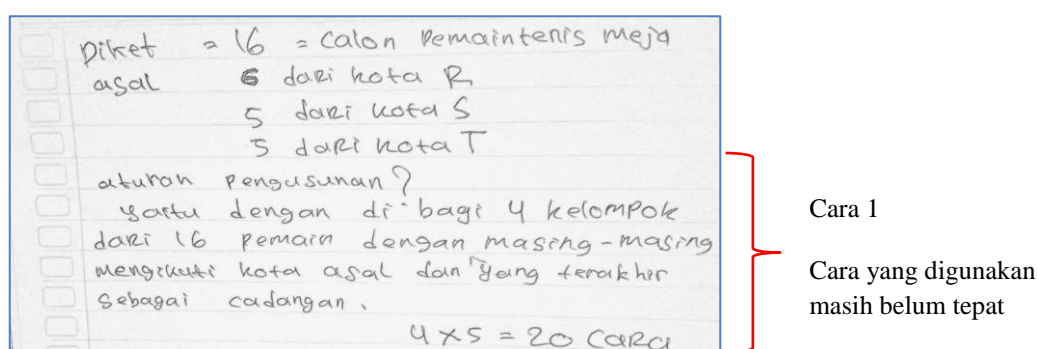 Diket = 16 = calon Pemaintenis meja
asal 6 dari kota R
5 dari kota S
5 dari kota T
aturan pengusunan?
yartu dengan di bagi 4 kelompok
dari 16 pemain dengan masing-masing
mengikuti kota asal dan yang terakhir
sebagai cadangan.
4 x 5 = 20 cara
Cara 1
Cara yang digunakan
masih belum tepat